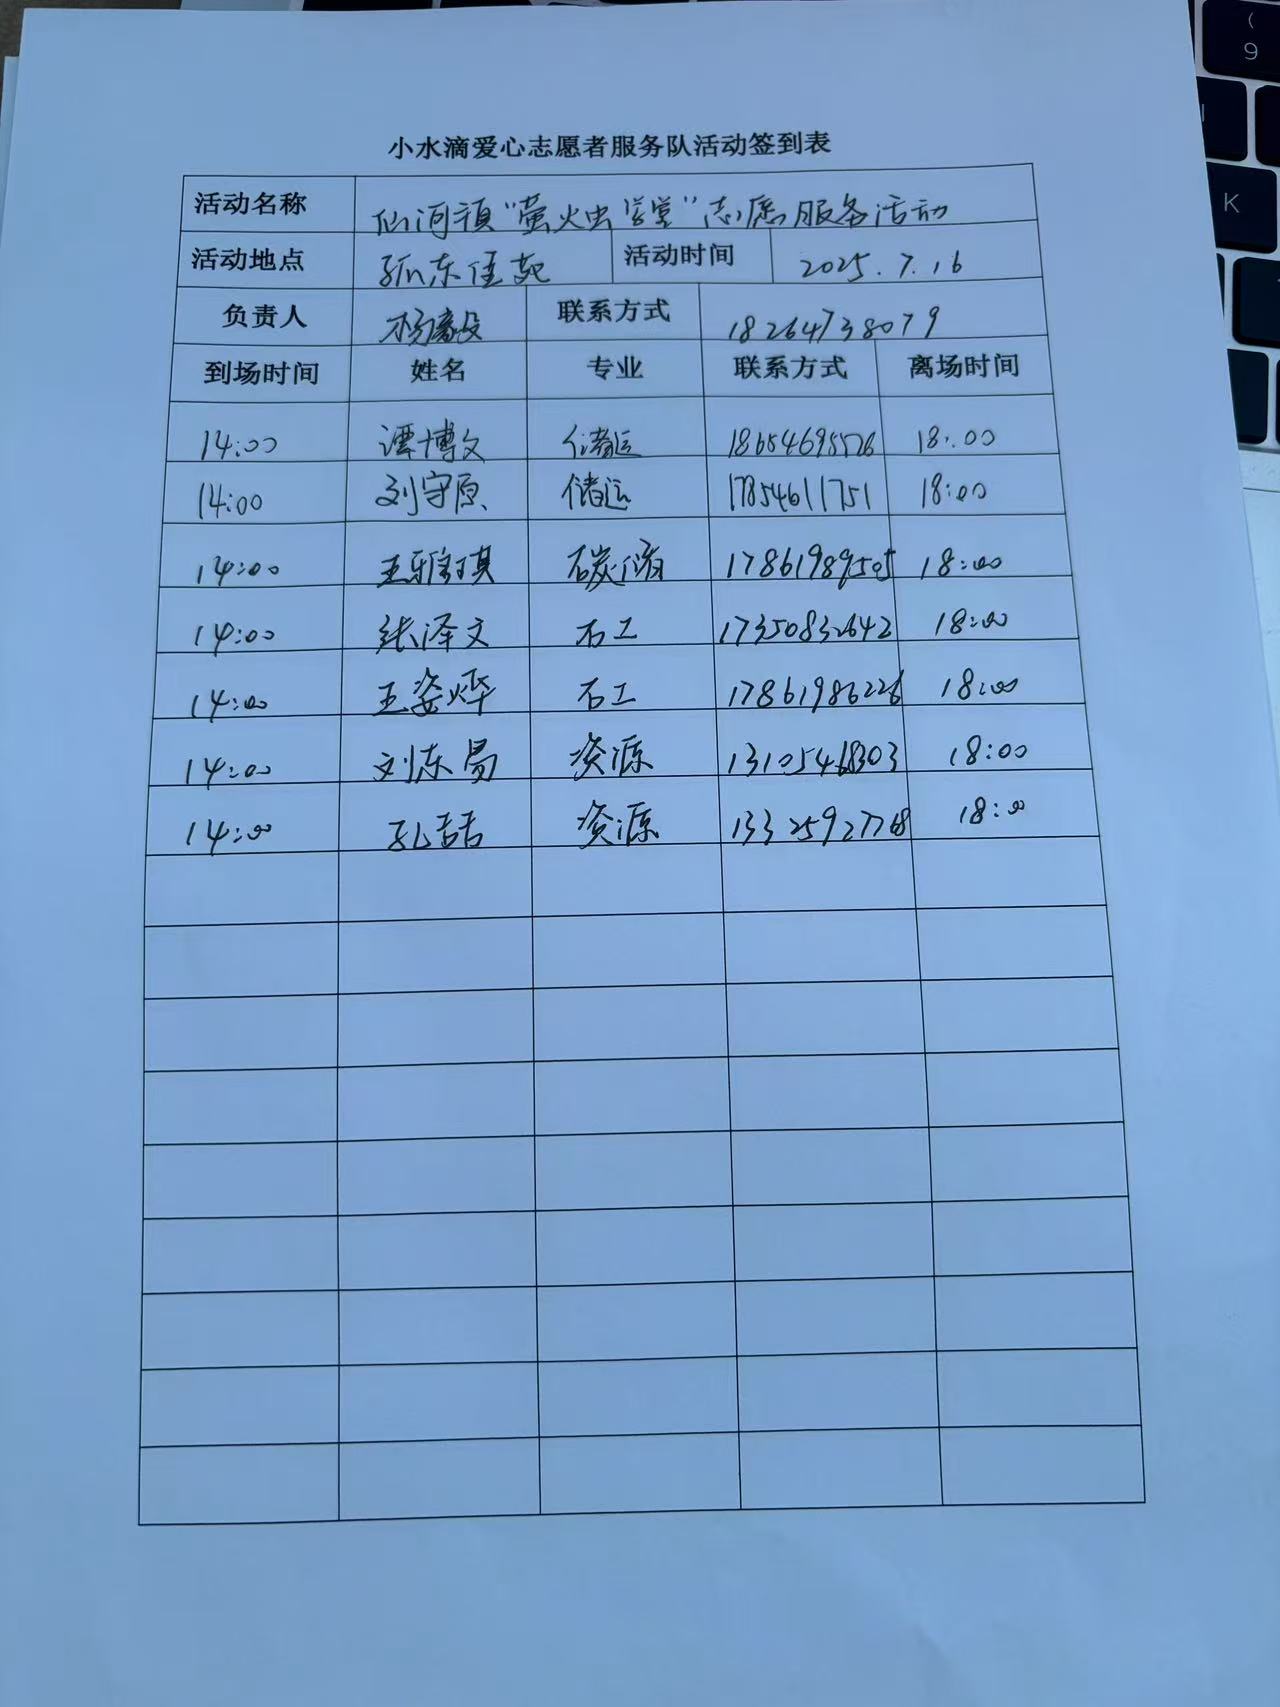 小水滴爱心志愿者服务队活动签到表
活动名称 仙河镇“萤火虫学堂”志愿服务活动
活动地点 孤东佳苑 活动时间 2025.7.16
负责人 杨毅 联系方式 18264738079
到场时间 姓名 专业 联系方式 离场时间
14:00 谭博文 储运 18654695526 18:00
14:00 刘守原 储运 17854611751 18:00
14:00 王雅琪 碳储 17861989505 18:00
14:00 张泽文 石工 17350832642 18:00
14:00 王姿烨 石工 17861986226 18:00
14:00 刘东 资源 13105468303 18:00
14:00 孔喆 资源 13325927768 18:00
(
9
K